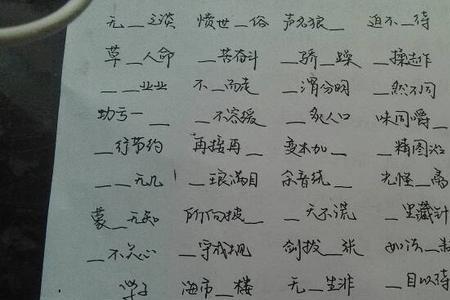 无__之谈 愤世__俗 声名狼__ 迫不__待
草__人命 __苦奋斗 __骄__躁 __操起作
__ __业业 不__而走 __渭分明 __然不同
功亏一__ __不容缓 __炙人口 味同嚼__
__行节约 再接再__ 变本加__ __精图治
__ __无几 __琅满目 余音绕__ 光怪__离
蒙__无知 所向披__ __天不谎 __里藏针
__不关心 __守成规 剑拔__张 如法__制
__学子 海市__楼 无__生非 __目以待